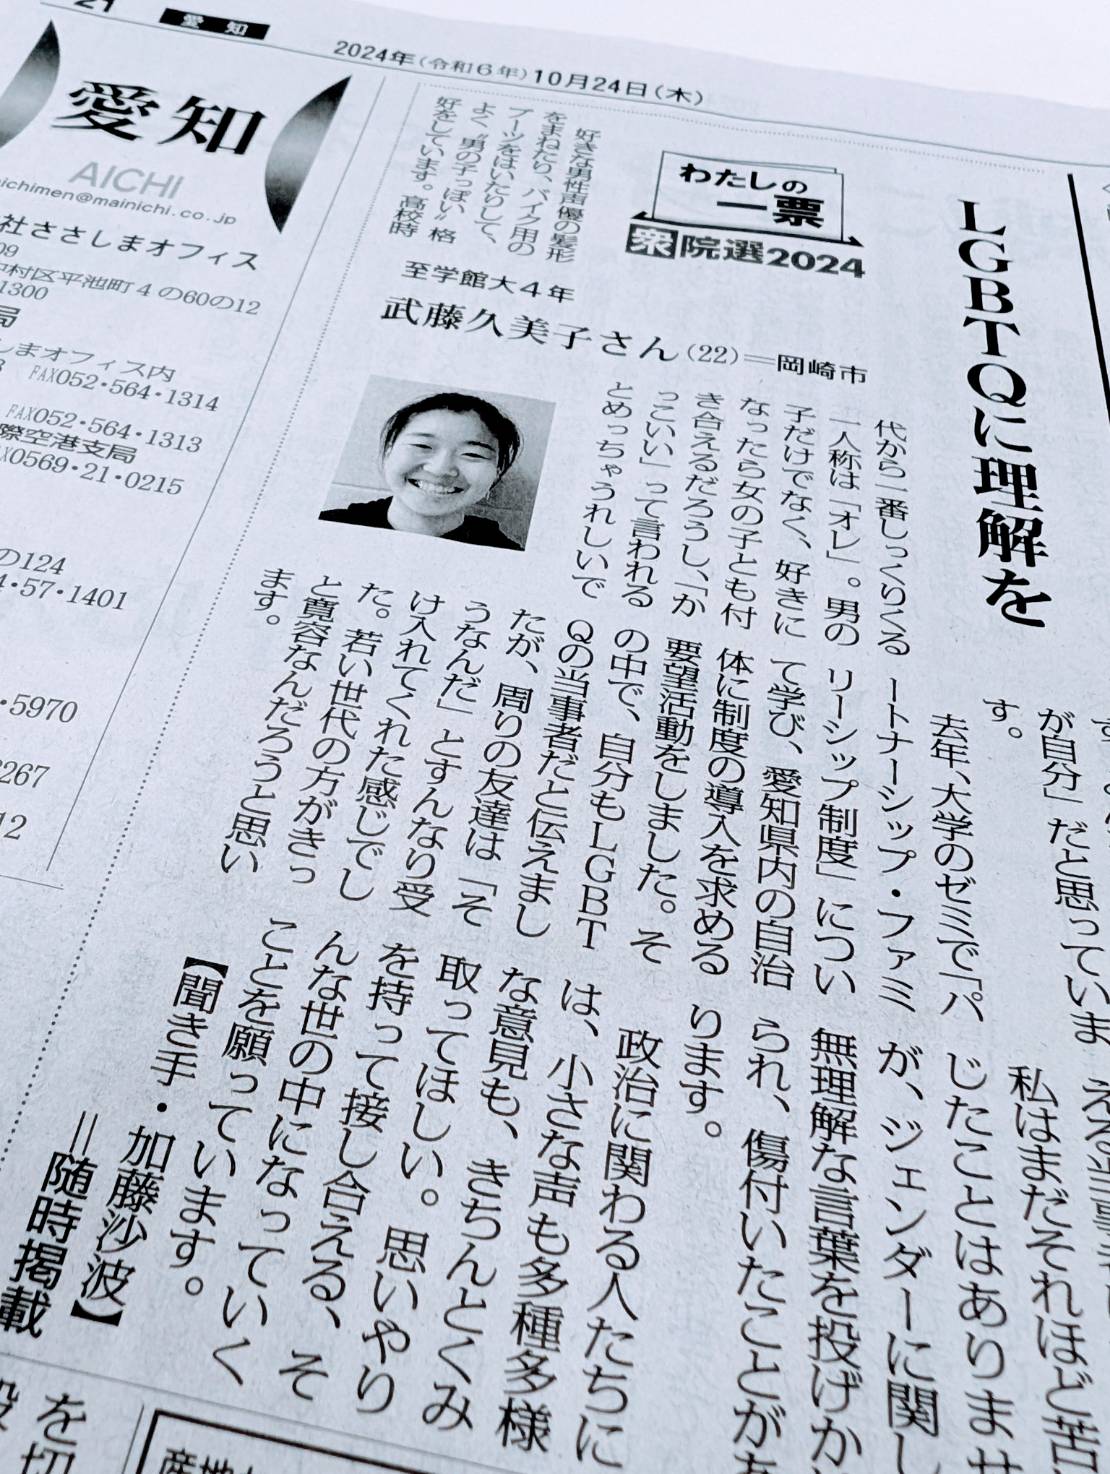 21
愛知
2024年(令和6年)10月24日(木)
愛知
AICHI
ichimen@mainichi.co.jp
社ささしまオフィス
09
中村区平池町4の60の12
1300
局
しまオフィス内
FAX052・564・1314
FAX052・564・1313
際空港支局
0569・21・0215
の124
・57・1401
・5970
267
12
LGBTQに理解を
わたしの
一票
衆院選2024
至学館大4年
武藤久美子さん(22)=岡崎市
好きな男性声優の髪形
をまねたり、バイク用の
ブーツをはいたりして、
よく〝男の子っぽい〟格
好をしています。高校時
代から一番しっくりくる
一人称は「オレ」。男の
子だけでなく、好きに
なったら女の子とも付
き合えるだろうし、「か
っこいい」って言われる
とめっちゃうれしいで
が自分」だと思っていま
す。
去年、大学のゼミで「パ
ートナーシップ・ファミ
リーシップ制度」につい
て学び、愛知県内の自治
体に制度の導入を求める
要望活動をしました。そ
の中で、自分もLGBT
Qの当事者だと伝えまし
たが、周りの友達は「そ
うなんだ」とすんなり受
け入れてくれた感じでし
た。若い世代の方がきっ
と寛容なんだろうと思い
ます。
える当事者
私はまだそれほど苦
じたことはありませ
が、ジェンダーに関し
無理解な言葉を投げか
られ、傷付いたことがあ
ります。
政治に関わる人たちに
は、小さな声も多種多様
な意見も、きちんとくみ
取ってほしい。思いやり
を持って接し合える、そ
んな世の中になっていく
ことを願っています。
【聞き手・加藤沙波】
=随時掲載
を切
産地